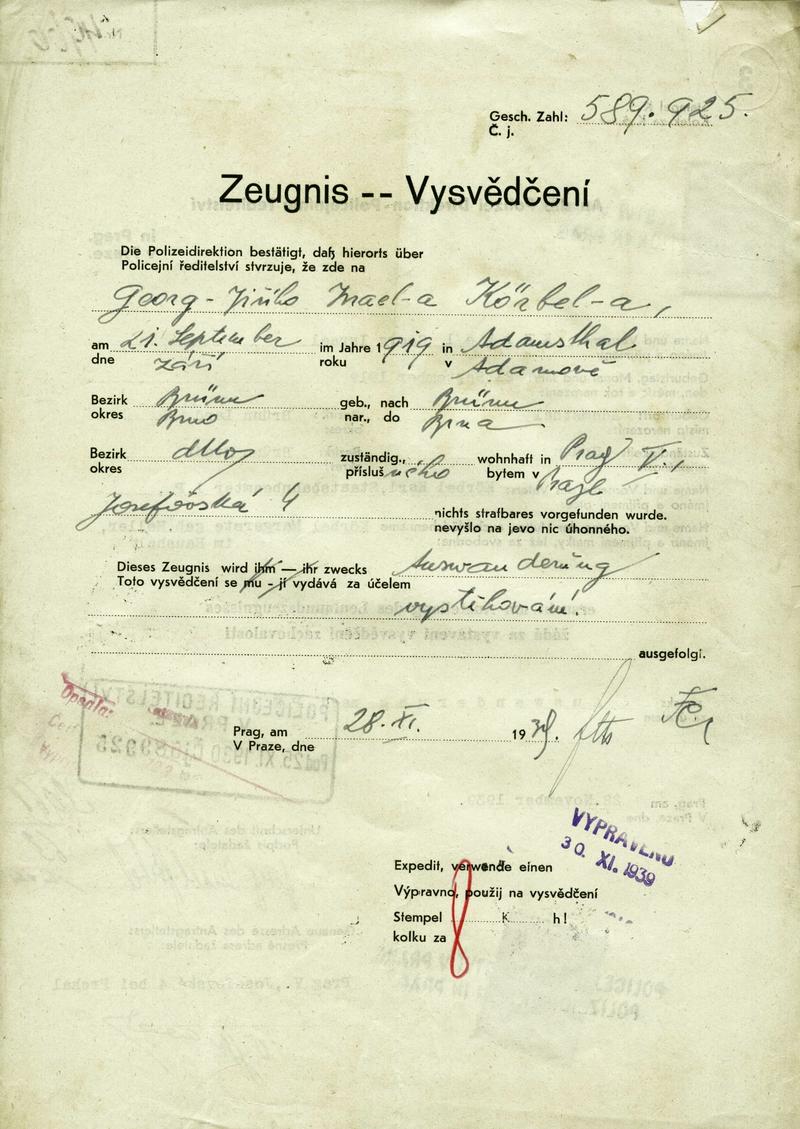 Gesch. Zahl: 589.925.
Č. j.
Zeugnis -- Vysvědčení
Die Polizeidirektion bestätigt, daß hierorts über
Policejní ředitelství stvrzuje, že zde na
Georg-Jiřího Israel-a Körbel-a,
am 21. September im Jahre 1919 in Adamsthal
dne září roku v Adamově
Bezirk Brünn geb., nach Brünn
okres Brno nar., do Brna
Bezirk dtto zuständig., wohnhaft in Prag V.,
okres příslušného bytem v Praze
Josefovská 4 nichts strafbares vorgefunden wurde.
nevyšlo na jevo nic úhonného.
Dieses Zeugnis wird ihm — ihr zwecks Auswanderung
Toto vysvědčení se mu - jí vydává za účelem
vystěhování.
ausgefolgt.
POLICEJNÍ ŘEDITELSTVÍ
V PRAZE
Prag, am 28. XI. 1939.
V Praze, dne
VYPRAVENO
30. XI. 1939
Expedit, verwende einen
Výpravno, použij na vysvědčení
Stempel K h!
kolku za